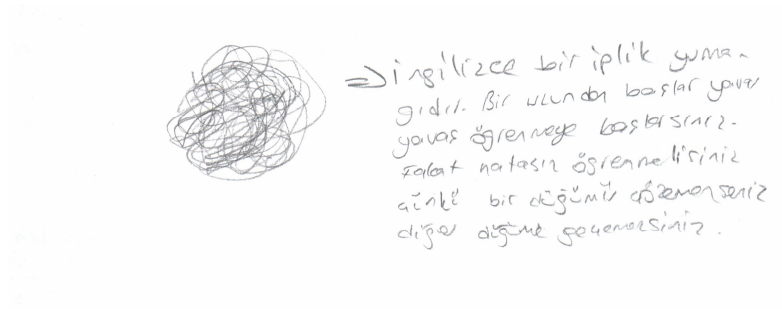 ⇒ ingilizce bir iplik yuma-
ğıdır. Bir ucundan başlar yavaş
yavaş öğrenmeye başlarsınız.
Fakat hatasız öğrenmelisiniz
çünkü bir düğümü çözemezseniz
diğer düğüme geçemezsiniz.